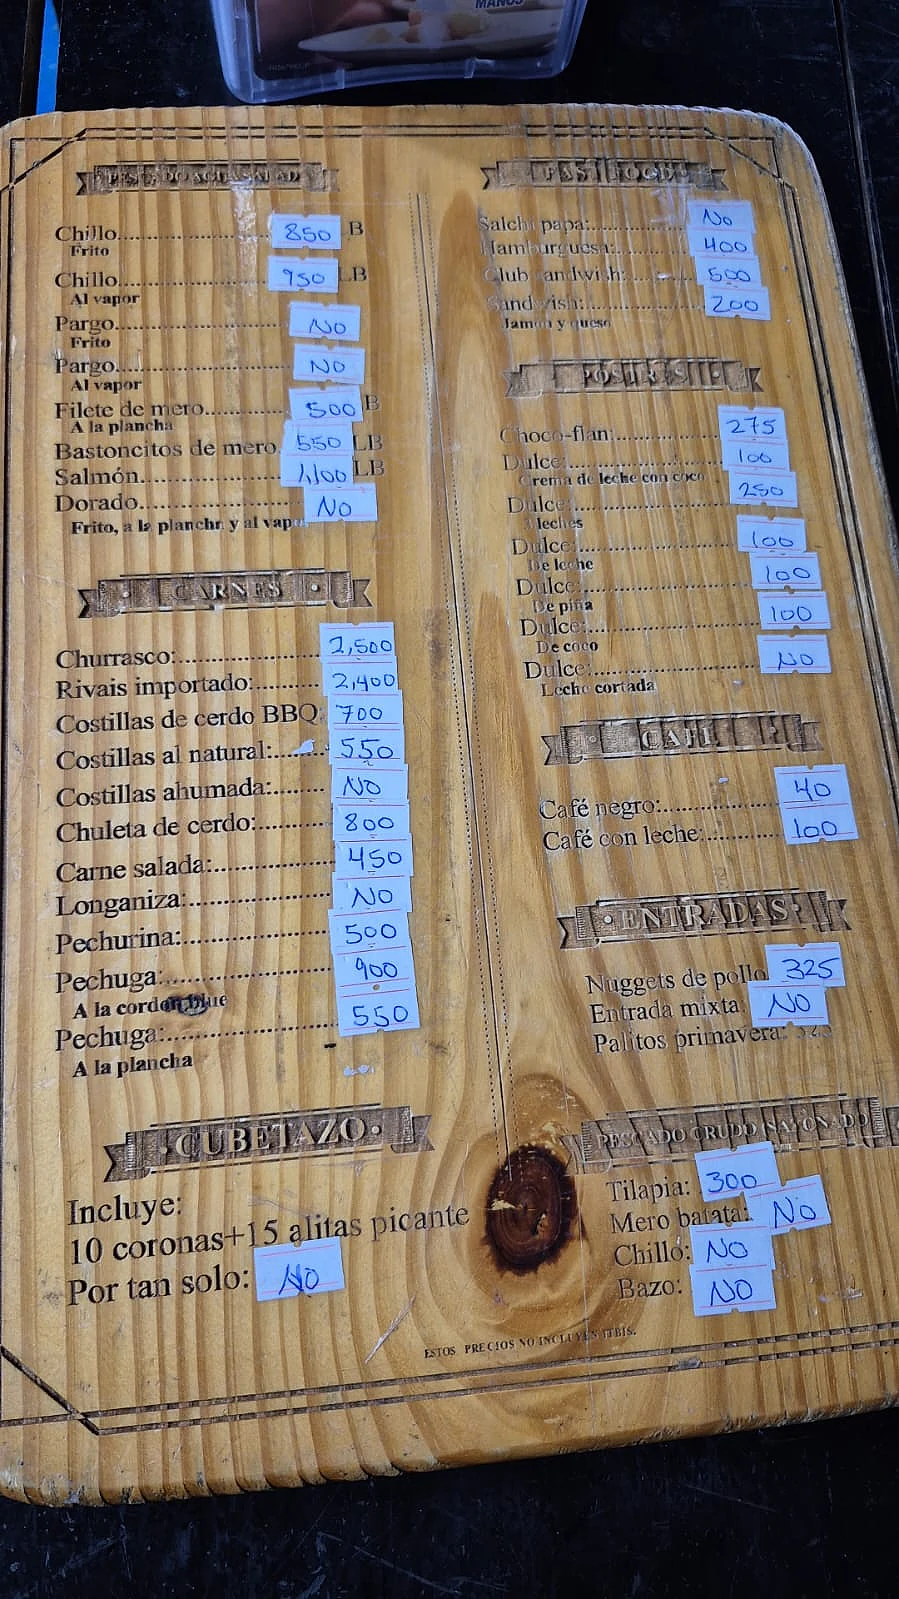 MANOS
PESCADO AGUA SALADA
Chillo 850 B
Frito
Chillo 950 LB
Al vapor
Pargo NO
Frito
Pargo NO
Al vapor
Filete de mero 500 B
A la plancha
Bastoncitos de mero 550 LB
Salmón 1,100 LB
Dorado NO
Frito, a la plancha y al vapor
CARNES
Churrasco: 2,500
Rivais importado: 2,400
Costillas de cerdo BBQ 700
Costillas al natural: 550
Costillas ahumada: NO
Chuleta de cerdo: 800
Carne salada: 450
Longaniza: NO
Pechurina: 500
Pechuga: 900
A la cordon blue
Pechuga: 550
A la plancha
CUBETAZO
Incluye:
10 coronas+15 alitas picante
Por tan solo: NO
FAST FOOD
Salchi papa: No
Hamburguesa: 400
Club sandwish: 500
Sandwish: 200
Jamon y queso
POSTRES
Choco-flan: 275
Dulce: 100
Crema de leche con coco
Dulce: 250
3 leches
Dulce: 100
De leche
Dulce: 100
De piña
Dulce: 100
De coco
Dulce: NO
Leche cortada
CAFE
Café negro: 40
Café con leche: 100
ENTRADAS
Nuggets de pollo 325
Entrada mixta: NO
Palitos primavera: 325
PESCADO CRUDO SAZONADO
Tilapia: 300
Mero batata: No
Chillo: NO
Bazo: NO
ESTOS PRECIOS NO INCLUYEN ITBIS.